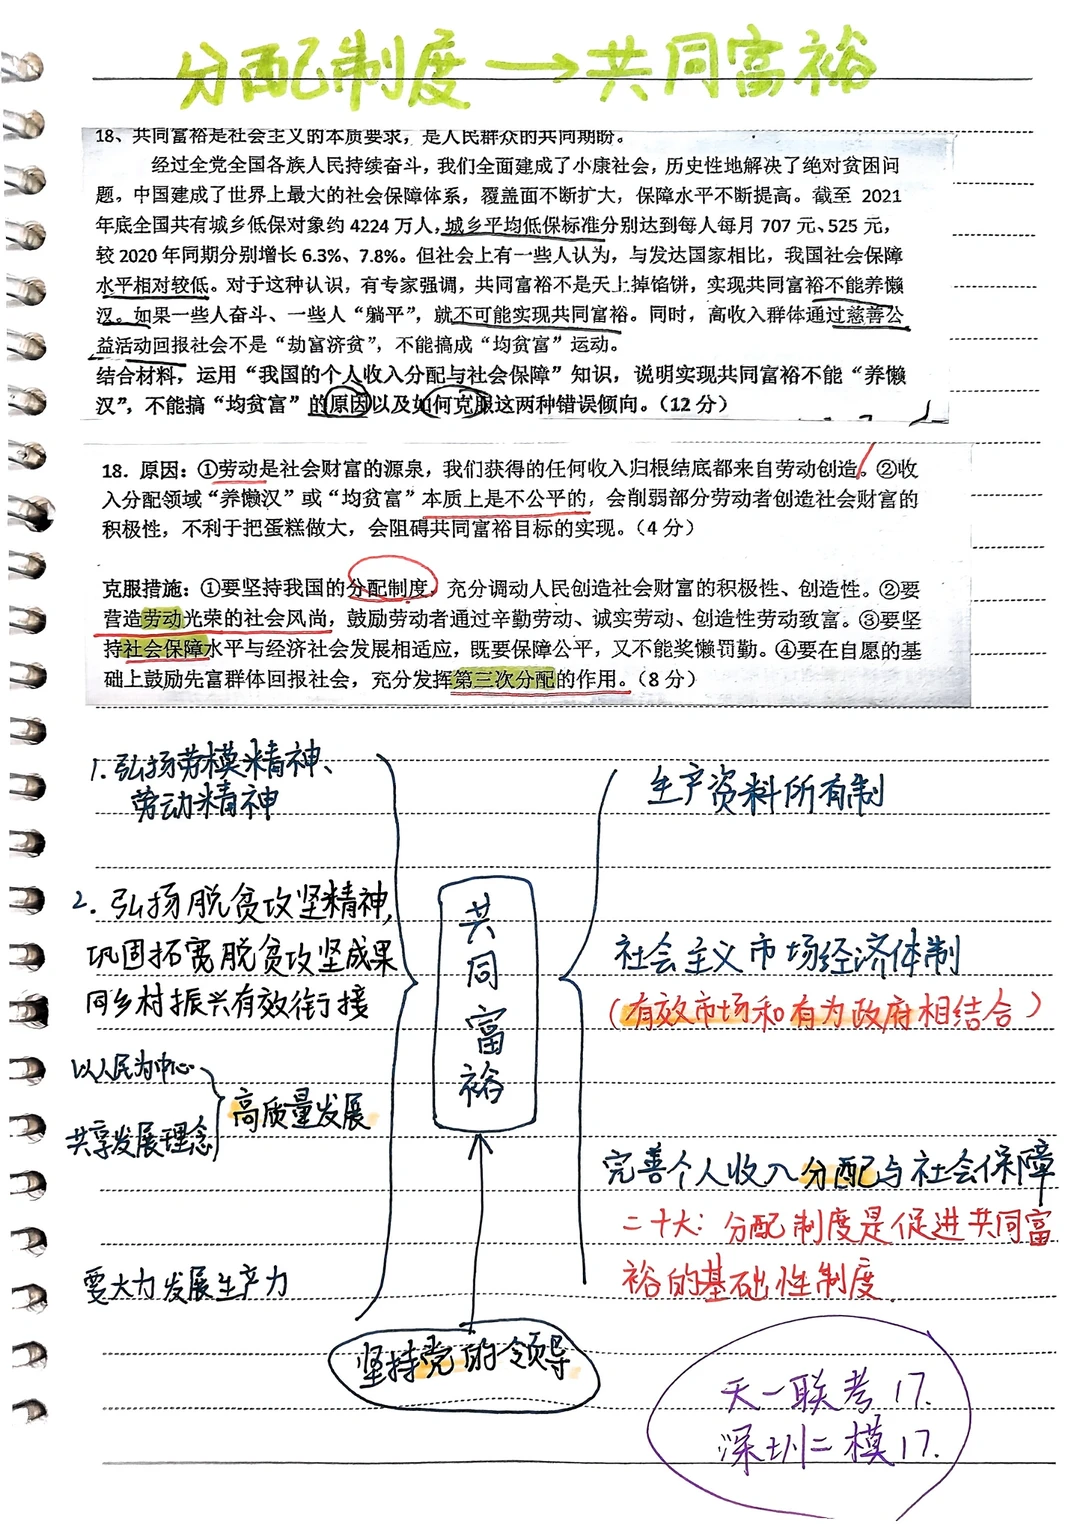 分配制度→共同富裕
18、共同富裕是社会主义的本质要求，是人民群众的共同期盼。
经过全党全国各族人民持续奋斗，我们全面建成了小康社会，历史性地解决了绝对贫困问
题。中国建成了世界上最大的社会保障体系，覆盖面不断扩大，保障水平不断提高。截至 2021
年底全国共有城乡低保对象约 4224 万人，城乡平均低保标准分别达到每人每月 707 元、525 元，
较 2020 年同期分别增长 6.3%、7.8%。但社会上有一些人认为，与发达国家相比，我国社会保障
水平相对较低。对于这种认识，有专家强调，共同富裕不是天上掉馅饼，实现共同富裕不能养懒
汉。如果一些人奋斗、一些人“躺平”，就不可能实现共同富裕。同时，高收入群体通过慈善公
益活动回报社会不是“劫富济贫”，不能搞成“均贫富”运动。
结合材料，运用“我国的个人收入分配与社会保障”知识，说明实现共同富裕不能“养懒
汉”，不能搞“均贫富”的原因以及如何克服这两种错误倾向。（12 分）
18. 原因：①劳动是社会财富的源泉，我们获得的任何收入归根结底都来自劳动创造。②收
入分配领域“养懒汉”或“均贫富”本质上是不公平的，会削弱部分劳动者创造社会财富的
积极性，不利于把蛋糕做大，会阻碍共同富裕目标的实现。（4 分）
克服措施：①要坚持我国的分配制度，充分调动人民创造社会财富的积极性、创造性。②要
营造劳动光荣的社会风尚，鼓励劳动者通过辛勤劳动、诚实劳动、创造性劳动致富。③要坚
持社会保障水平与经济社会发展相适应，既要保障公平，又不能奖懒罚勤。④要在自愿的基
础上鼓励先富群体回报社会，充分发挥第三次分配的作用。（8 分）
1. 弘扬劳模精神、
劳动精神
2. 弘扬脱贫攻坚精神，
巩固拓宽脱贫攻坚成果
同乡村振兴有效衔接
以人民为中心
共享发展理念
高质量发展
要大力发展生产力
共同富裕
坚持党的领导
生产资料所有制
社会主义市场经济体制
（有效市场和有为政府相结合）
完善个人收入分配与社会保障
二十大：分配制度是促进共同富
裕的基础性制度.
天一联考 17.
深圳二模 17.